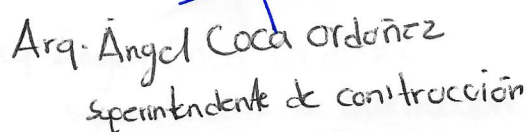 Arq. Ángel Coca Ordoñez
Superintendente de construcción